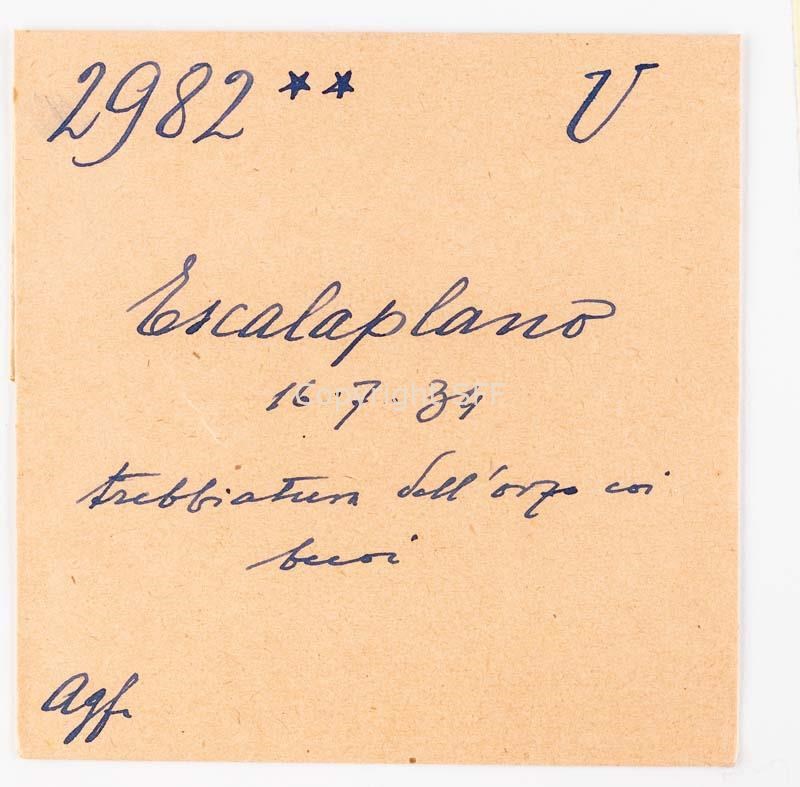 2982 ** V
Escalaplano
16·7·34
trebbiatura dell'orzo coi
buoi
Agf.
Copyright SFF